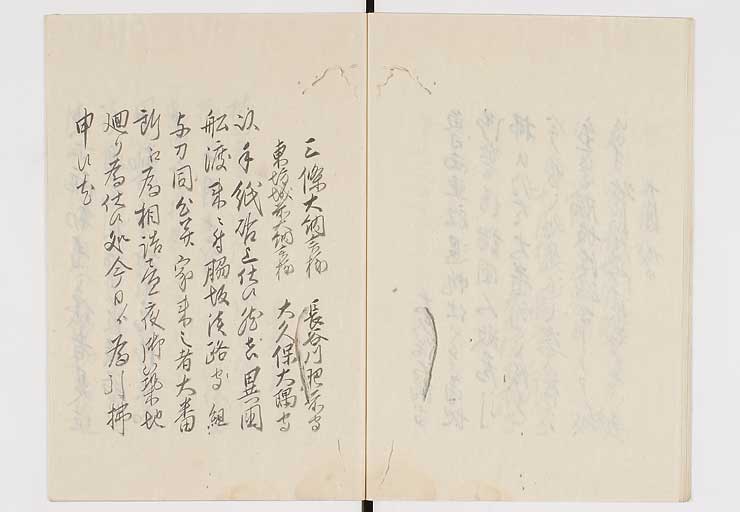 三條大納言様 長谷川肥前守
東坊城前大納言様 大久保大隅守
以手紙啓上仕候然者異国
船渡来ニ付脇坂淡路守組
与力同公英家来之者大番
所江為相詰昼夜御築地
廻り為仕候処今日ゟ為引拂
申候尤